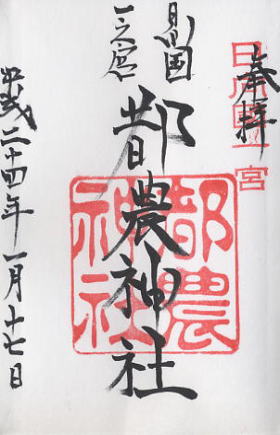 奉拝
日向国一宮
日向国
一之宮
都農神社
都農神社
平成二十四年一月十七日